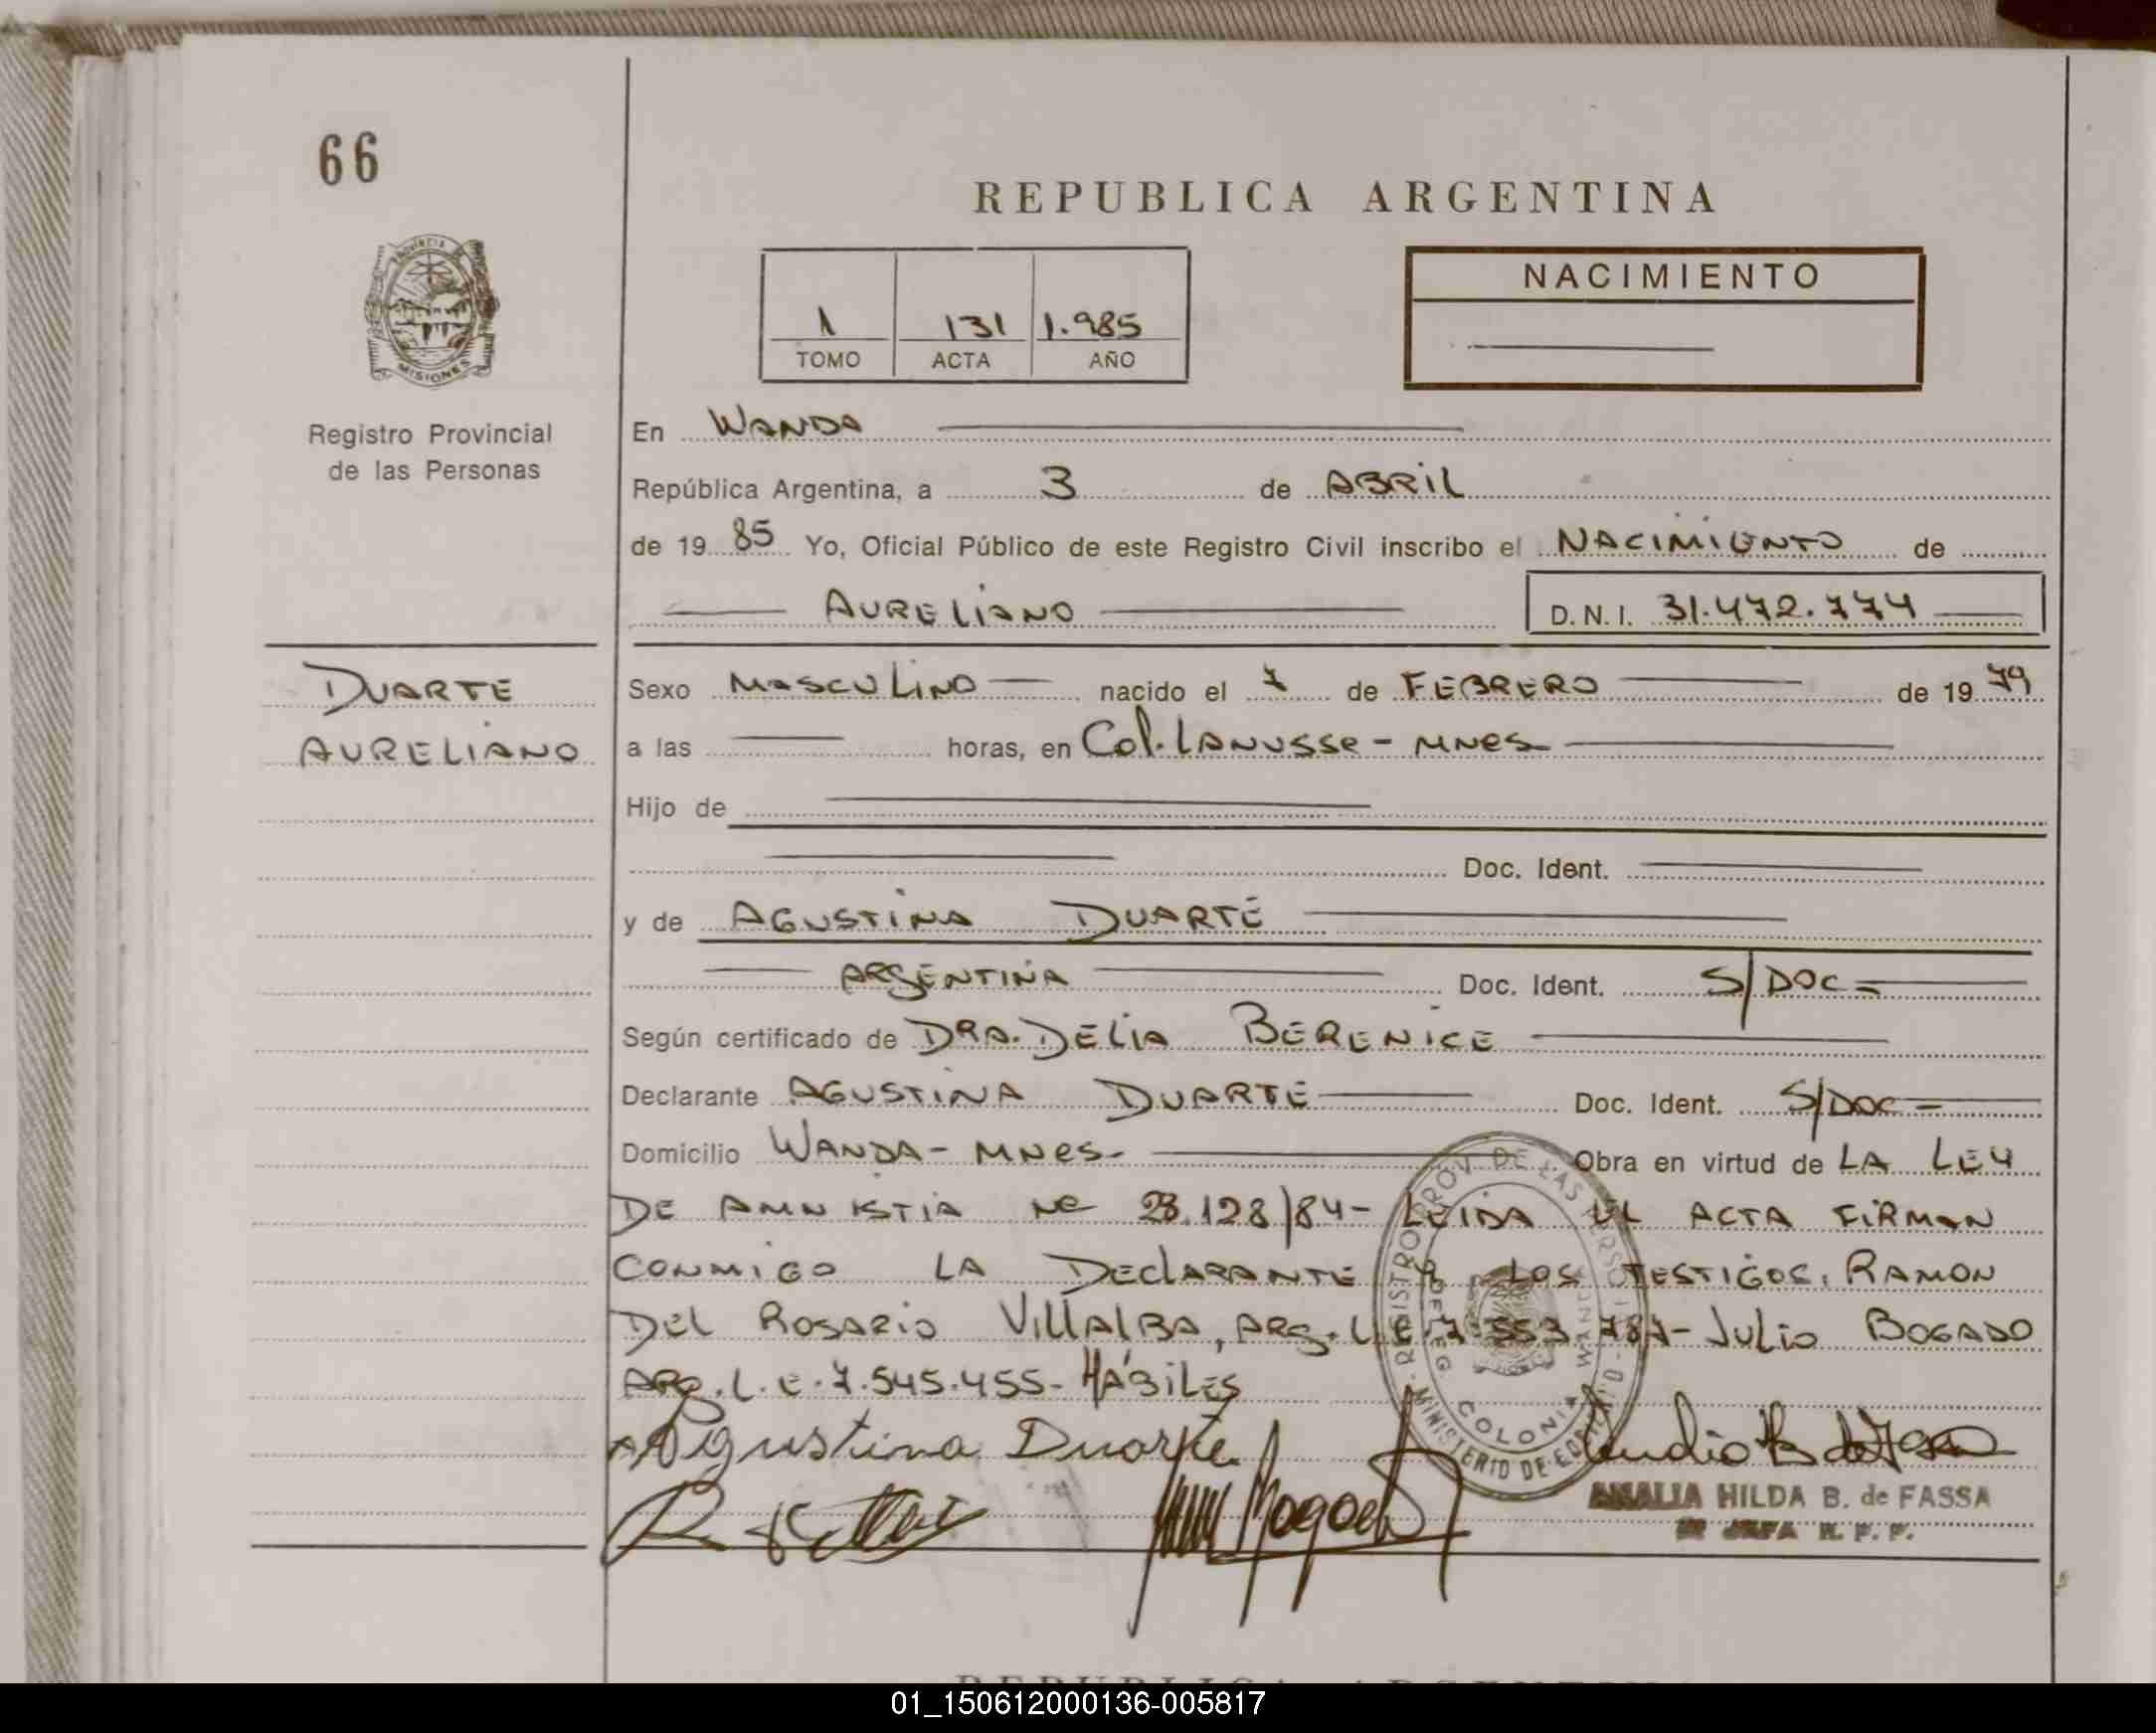 66
REPUBLICA ARGENTINA
NACIMIENTO
1 131 1.985
TOMO ACTA AÑO
PROVINCIA DE
MISIONES
Registro Provincial
de las Personas
En WANDA
República Argentina, a 3 de ABRIL
de 19 85 Yo, Oficial Público de este Registro Civil inscribo el NACIMIENTO de
AURELIANO D.N.I. 31.472.774
DUARTE
AURELIANO
Sexo MASCULINO nacido el 7 de FEBRERO de 19 79
a las horas, en Col. LANUSSE - MNES
Hijo de
Doc. Ident.
y de AGUSTINA DUARTE
ARGENTINA Doc. Ident. S/DOC
Según certificado de DRA. DELIA BERENICE
Declarante AGUSTINA DUARTE Doc. Ident. S/DOC
Domicilio WANDA - MNES- Obra en virtud de LA LEY
DE AMNISTIA Nº 23.128/84- LEIDA EL ACTA FIRMAN
CONMIGO LA DECLARANTE Y LOS TESTIGOS, RAMON
DEL ROSARIO VILLALBA, ARG. L.E. 7 553 787- JULIO BOGADO
ARG. L.E. 7.545.455- HÁBILES
Agustina Duarte
REGISTRO PROV. DE LAS PERSO
MINISTERIO DE
COLONIA WANDA
AMALIA HILDA B. de FASSA
JEFA R. P. P.
01_150612000136-005817